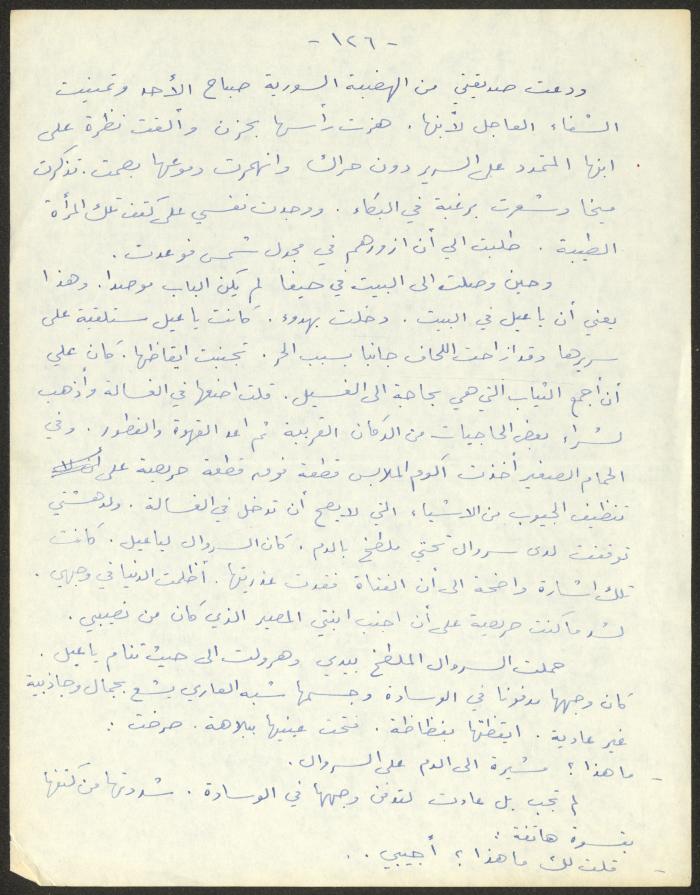 - ١٢٦ -
ودعت صديقتي من الهضبة السورية صباح الأحد وتمنيت
الشفاء العاجل لأبنها . هزت رأسها بحزن وألقت نظرة على
ابنها المتمدد على السرير دون حراك وانهمرت دموعها بصمت . تذكرت
ميخا وشعرت برغبة في البكاء . ووجدت نفسي على كتف تلك المرأة
الطيبة . طلبت الي أن ازورهم في مجدل شمس فوعدت .
وحين وصلت الى البيت في حيفا لم يكن الباب موصدا . وهذا
يعني أن ياعيل في البيت . دخلت بهدوء . كانت ياعيل مستلقية على
سريرها وقد ازاحت اللحاف جانبا بسبب الحر . تجنبت ايقاظها . كان علي
أن أجمع الثياب التي هي بحاجة الى الغسيل . قلت اضعها في الغسالة وأذهب
لشراء بعض الحاجيات من الدكان القريبة ثم اعد القهوة والفطور . وفي
الحمام الصغير أخذت أكوم الملابس قطعة فوق قطعة حريصة على
تنظيف الجيوب من الاشياء التي لا يصح أن تدخل في الغسالة . ولدهشتي
توقفت لدى سروال تحتي ملطخ بالدم . كان السروال لياعيل . كانت
تلك اشارة واضحة الى أن الفتاة فقدت عذريتها . أظلمت الدنيا في وجهي .
لشد ما كنت حريصة على أن اجنب ابنتي المصير الذي كان من نصيبي .
حملت السروال الملطخ بيدي وهرولت الى حيث تنام ياعيل .
كان وجهها مدفونا في الوسادة وجسمها شبه العاري يشع بجمال وجاذبية
غير عادية . ايقظتها بفظاظة . فتحت عينيها ببلاهة . صرخت :
- ما هذا ؟ مشيرة الى الدم على السروال .
لم تجب بل عادت لتدفن وجهها في الوسادة . شددتها من كتفها
بقسوة هاتفة :
- قلت لك ما هذا ؟ أجيبي . .